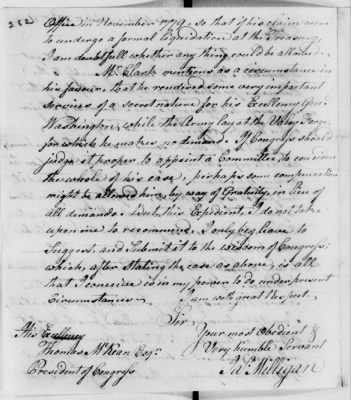 252
Office in November 1779, so that if his claim were
to undergo a formal liquidation at the Treasury,
I am doubtfull whether any thing could be allowed.
Mr. Clark mentions as a circumstance in
his favour, that he rendered some very important
services of a secret nature for his Excellency Genl.
Washington, while the Army lay at the Valley Forge
for which he makes no demand. If Congress should
judge it proper to appoint a Committee, to consider
the whole of his case, perhaps some compensation
might be allowed him, by way of Gratuity, in lieu of
all demands. But this Expedient, I do not take
upon me to recommend. I only beg leave to
suggest, and submit it to the wisdom of Congress;
which, after stating the case as above, is all
that I conceive is in my power to do under present
Circumstances.
I am with great Respect.
Sir,
Your most Obedient &
Very humble Servant
Ja. Milligan
His Excellency
Thomas McKean Esqr.
President of Congress